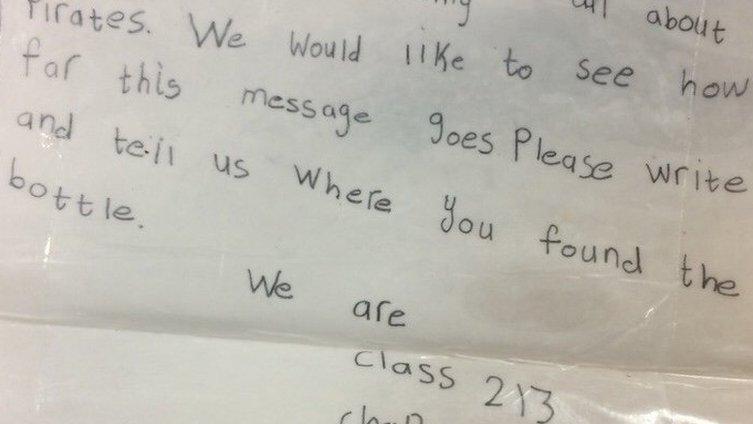 about
Pirates. We would like to see how
far this message goes Please write
and tell us where you found the
bottle.
We are
Class 2/3